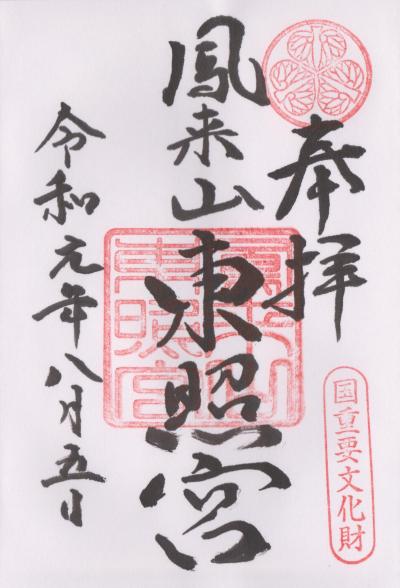 奉拝
国重要文化財
鳳来山東照宮
鳳来山東照宮
令和元年八月五日